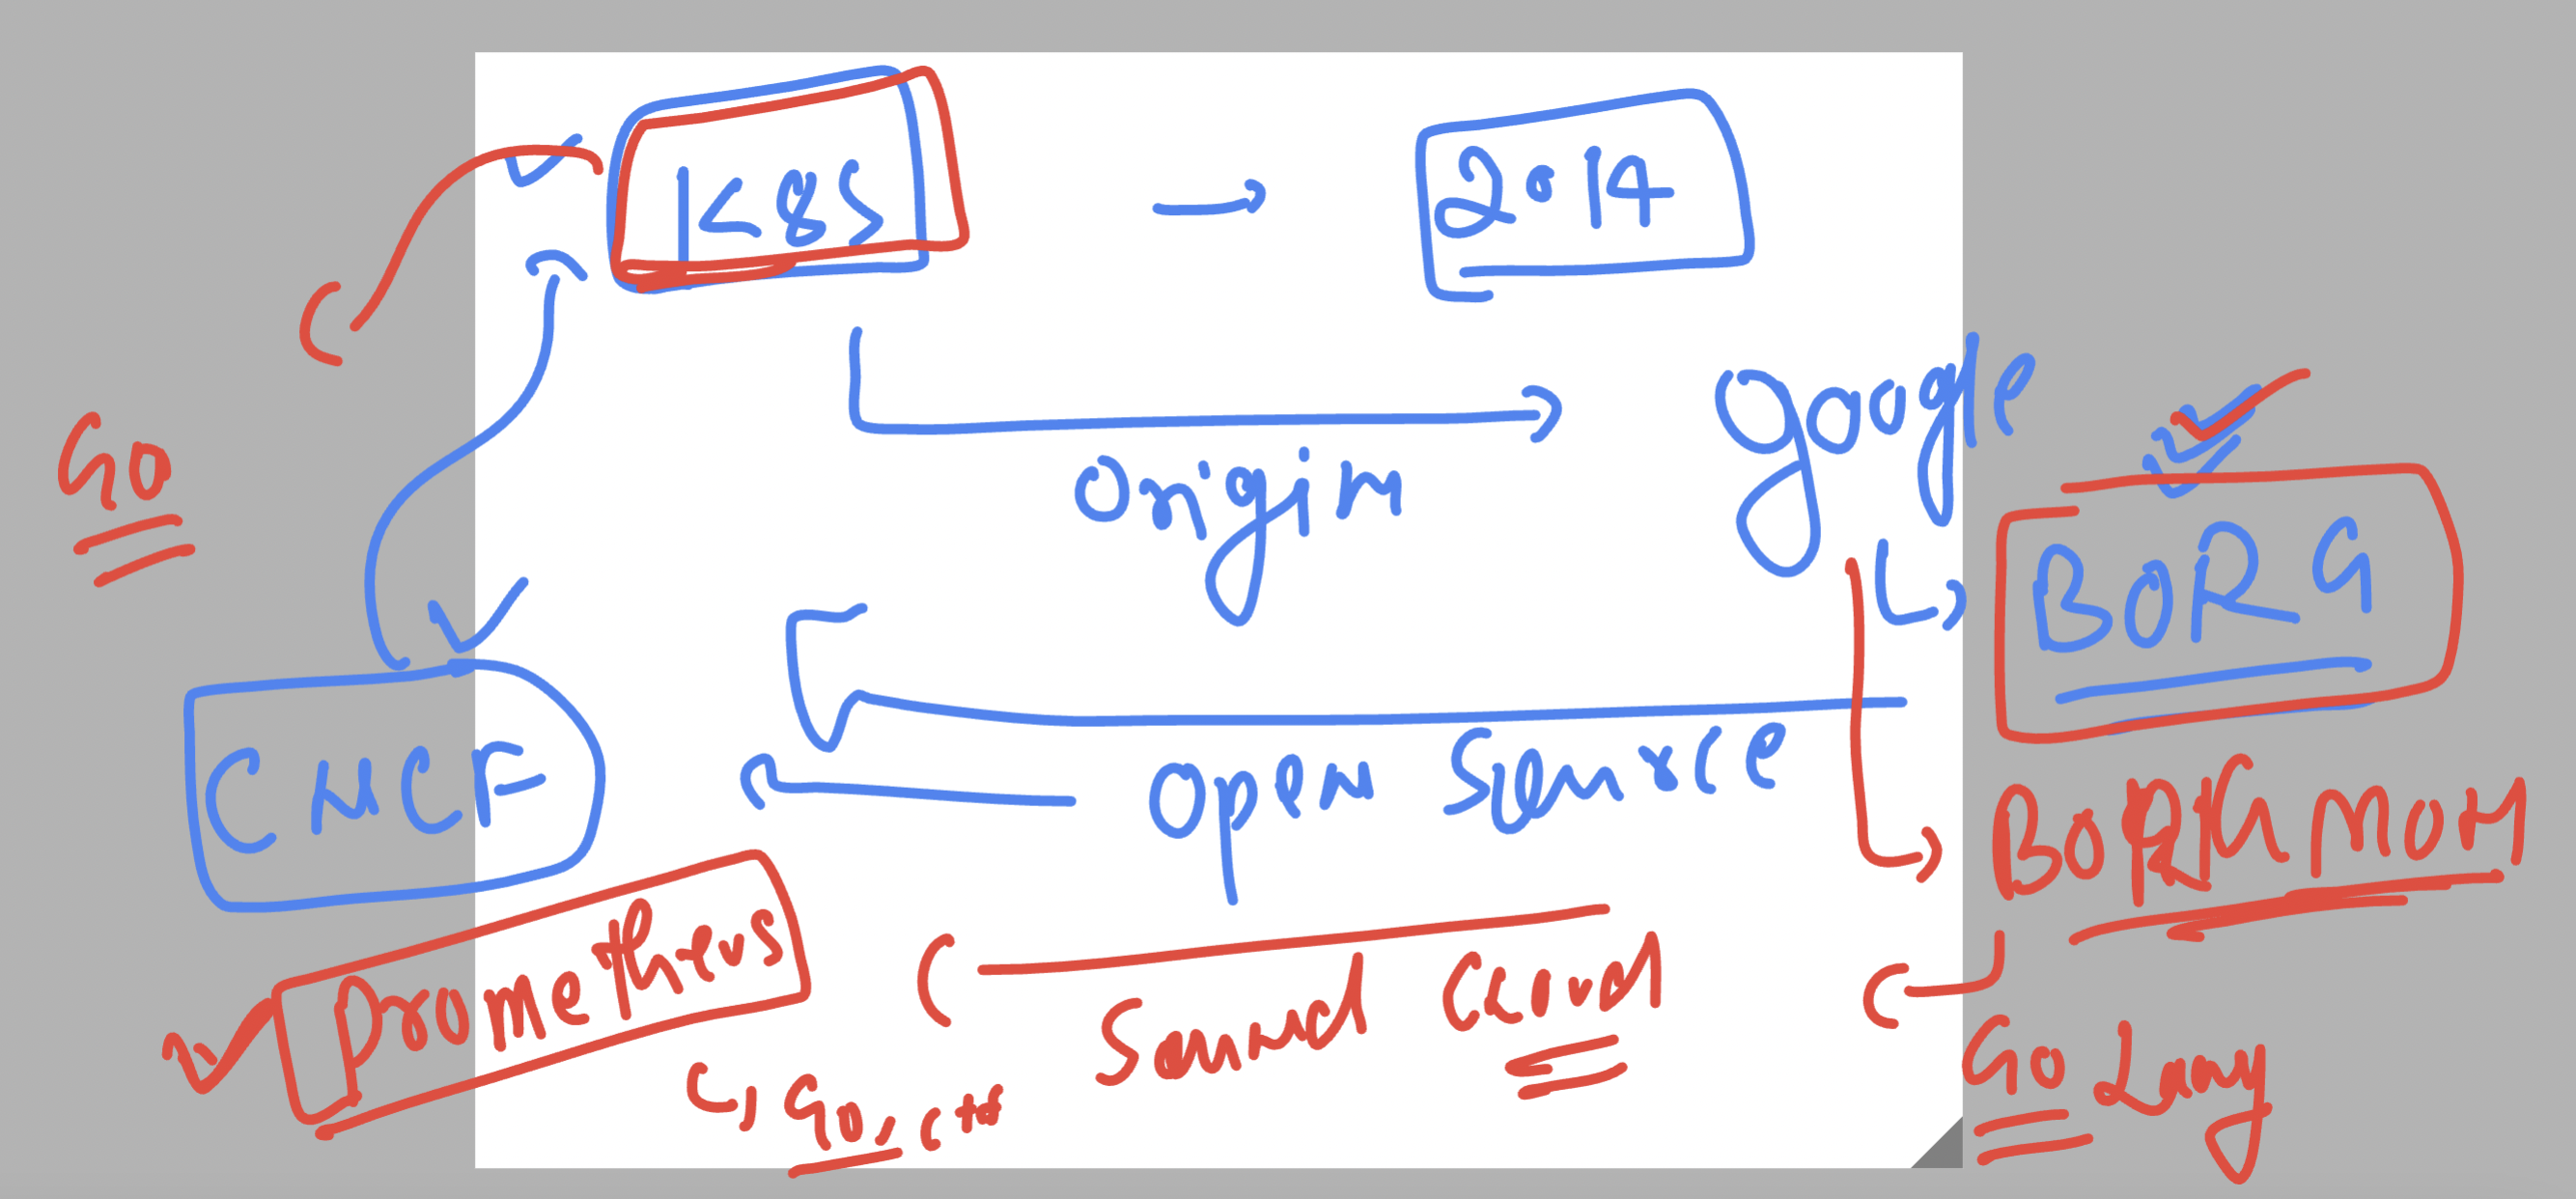 K8S → 2014
Go
Google
Origin
BORG
CNCF
Open Source
BORGMON
Prometheus
Sound Cloud
Go, C++
Go Lang